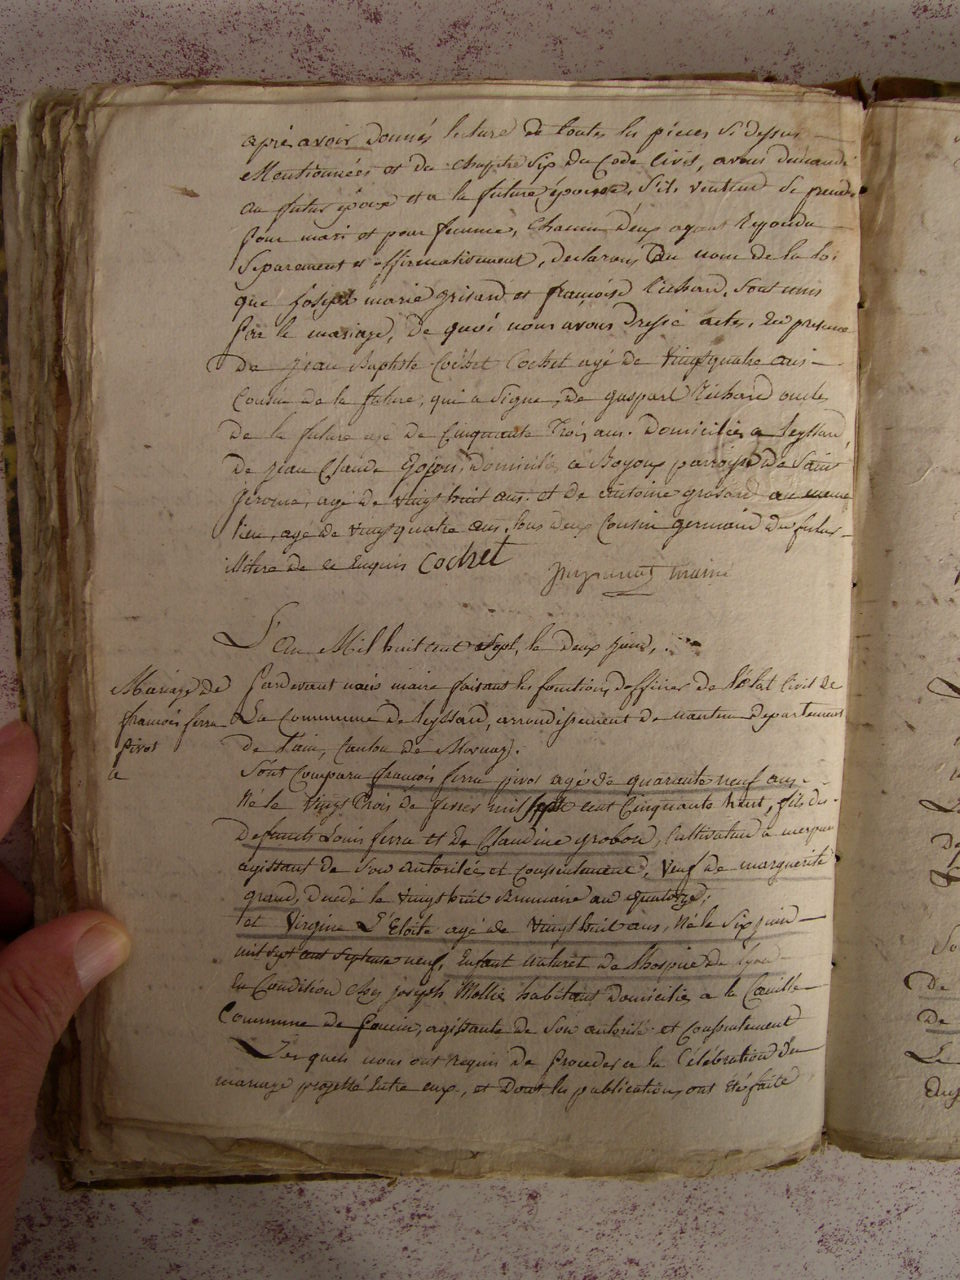 après avoir donnés lecture de toutes les pieces si dessus
Mentionnées et du chapitre Six du Code Civil, avons demandé
au futur époux et a la future épouse, S'ils veulent Se prendre
pour mari et pour femme, chacun d'eux ayant Repondu
Separement et affirmativement, declarons au nom de la loi
que Joseph marie grisard et françoise Richard, Sont unis
par le mariage, De quoi nous avons Dressé acte, En presence
de Jean Baptiste Cochet Cochet agé de Vingt quatre ans
Cousin de la future, qui a Signé, de gaspard Richard oncle
de la future agé de Cinquante Trois ans. Domiciliés a leyssard,
de jean Claude Domicilié a Boyoux parroisse de Saint
Jerome, agé de vingt huit ans et de antoine grisard au meme
lieu, agé de vingt quatre ans, tous deux Cousin germain du futur
illitéré de ce Enquis Cochet
maire
L'an Mil huit cent Sept, le deux juin,
Mariage De
françois ferra
pirot
a
Pardevant nous maire faisant les fonctions d'officier de l'état Civil de
La Commune de leyssard, arrondissement de nantua Departement
de l'ain, Canton de
Sont Comparu françois ferra pirot agé de quarante neuf ans
Né le Vingt Trois de mil Sept cent Cinquante huit, fils de
Defunts Louis ferra et de Claudine grobon, Cultivateur a
agissant de Son autorité et Consentement, Veuf de marguerite
decedé le Vingt huit Brumaire an quatorze,
et Virgine L'Etoile agé de Vingt huit ans, Né le Six juin
mil Sept cent Septante neuf, Enfant naturel de l'hospice de lyon
En Condition chez joseph Mollie habitant Domiciliés a la
Commune de agissante de Son autorité et Consentement
Lesquels nous ont Requis de proceder a la Célébration du
mariage projetté Entre eux, et Dont les publications ont été faite